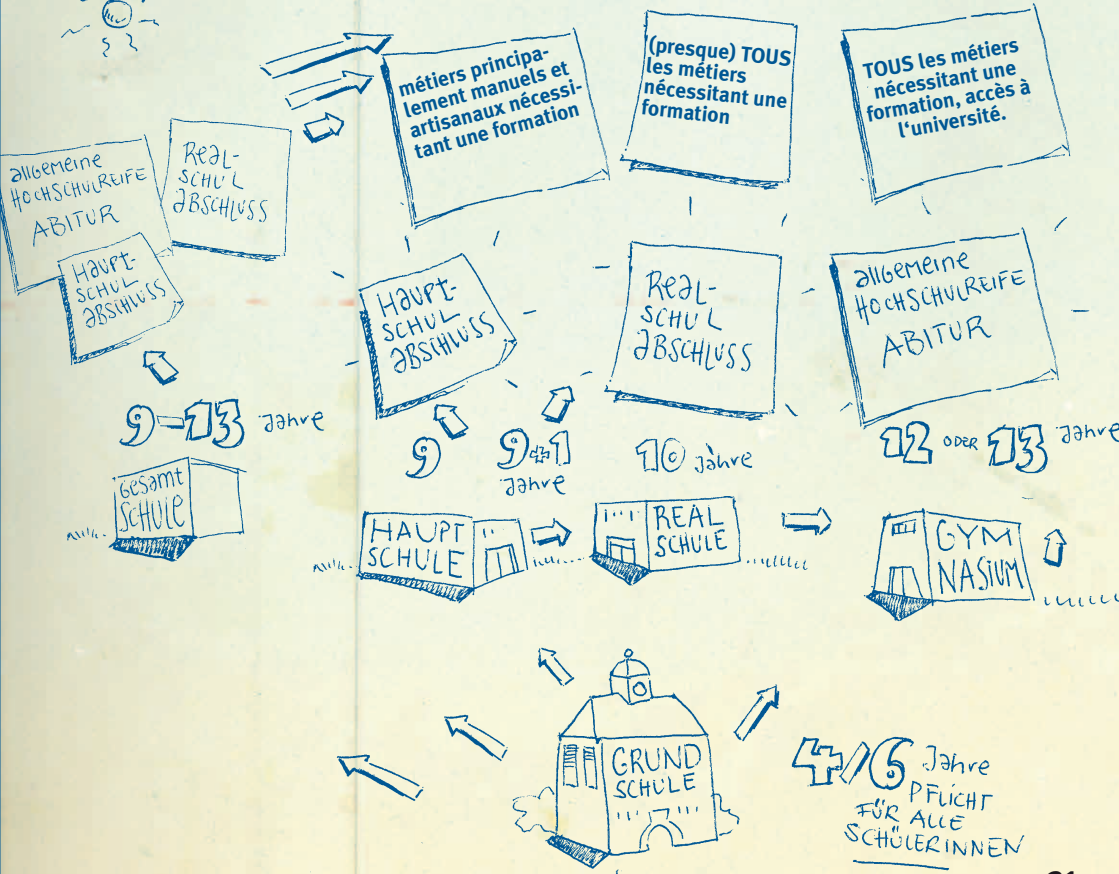 métiers principa-
lement manuels et
artisanaux nécessi-
tant une formation
(presque) TOUS
les métiers
nécessitant une
formation
TOUS les métiers
nécessitant une
formation, accès à
l'université.
allGemeine
HOCHSCHULREIFE
ABITUR
ReaL-
SCHUL
aBSCHLUSS
HauPT-
SCHUL
aBSCHLUSS
HauPT-
SCHUL
aBSCHLUSS
ReaL-
SCHUL
aBSCHLUSS
allGemeine
HOCHSCHULREIFE
ABITUR
9-13 Jahre
9
9+1
Jahre
10 Jahre
12 ODER 13 Jahre
Gesamt
SCHULE
HAUPT
SCHULE
REAL
SCHULE
GYM
NASIUM
GRUND
SCHULE
4/6 Jahre
PFLICHT
FÜR ALLE
SCHÜLERINNEN